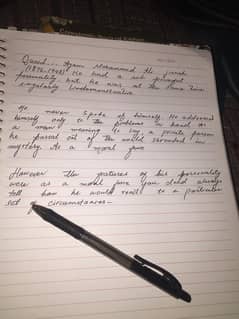 Quaid... Azam Mohammad Ali Jinnah
(1876-1948) He had a not
personality but he was at the same time
singularly undemonstrative.
He never spoke of himself. He addressed
himself only to the problems in hand as
a man's meaning to buy a private person
he passed out of the world shrouded in
mystery. As a moral
However the gestures of his personality
were as a moral you could always
tell how he would react to a particular
set of circumstances.